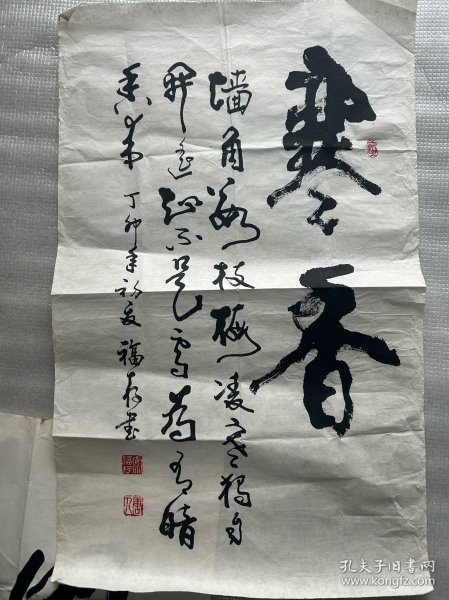 寒香
墙角数枝梅凌寒独自
开遥知不是雪为有暗
香来 丁卯年初夏 福存书
孔夫子旧书网
www.kongfz.com